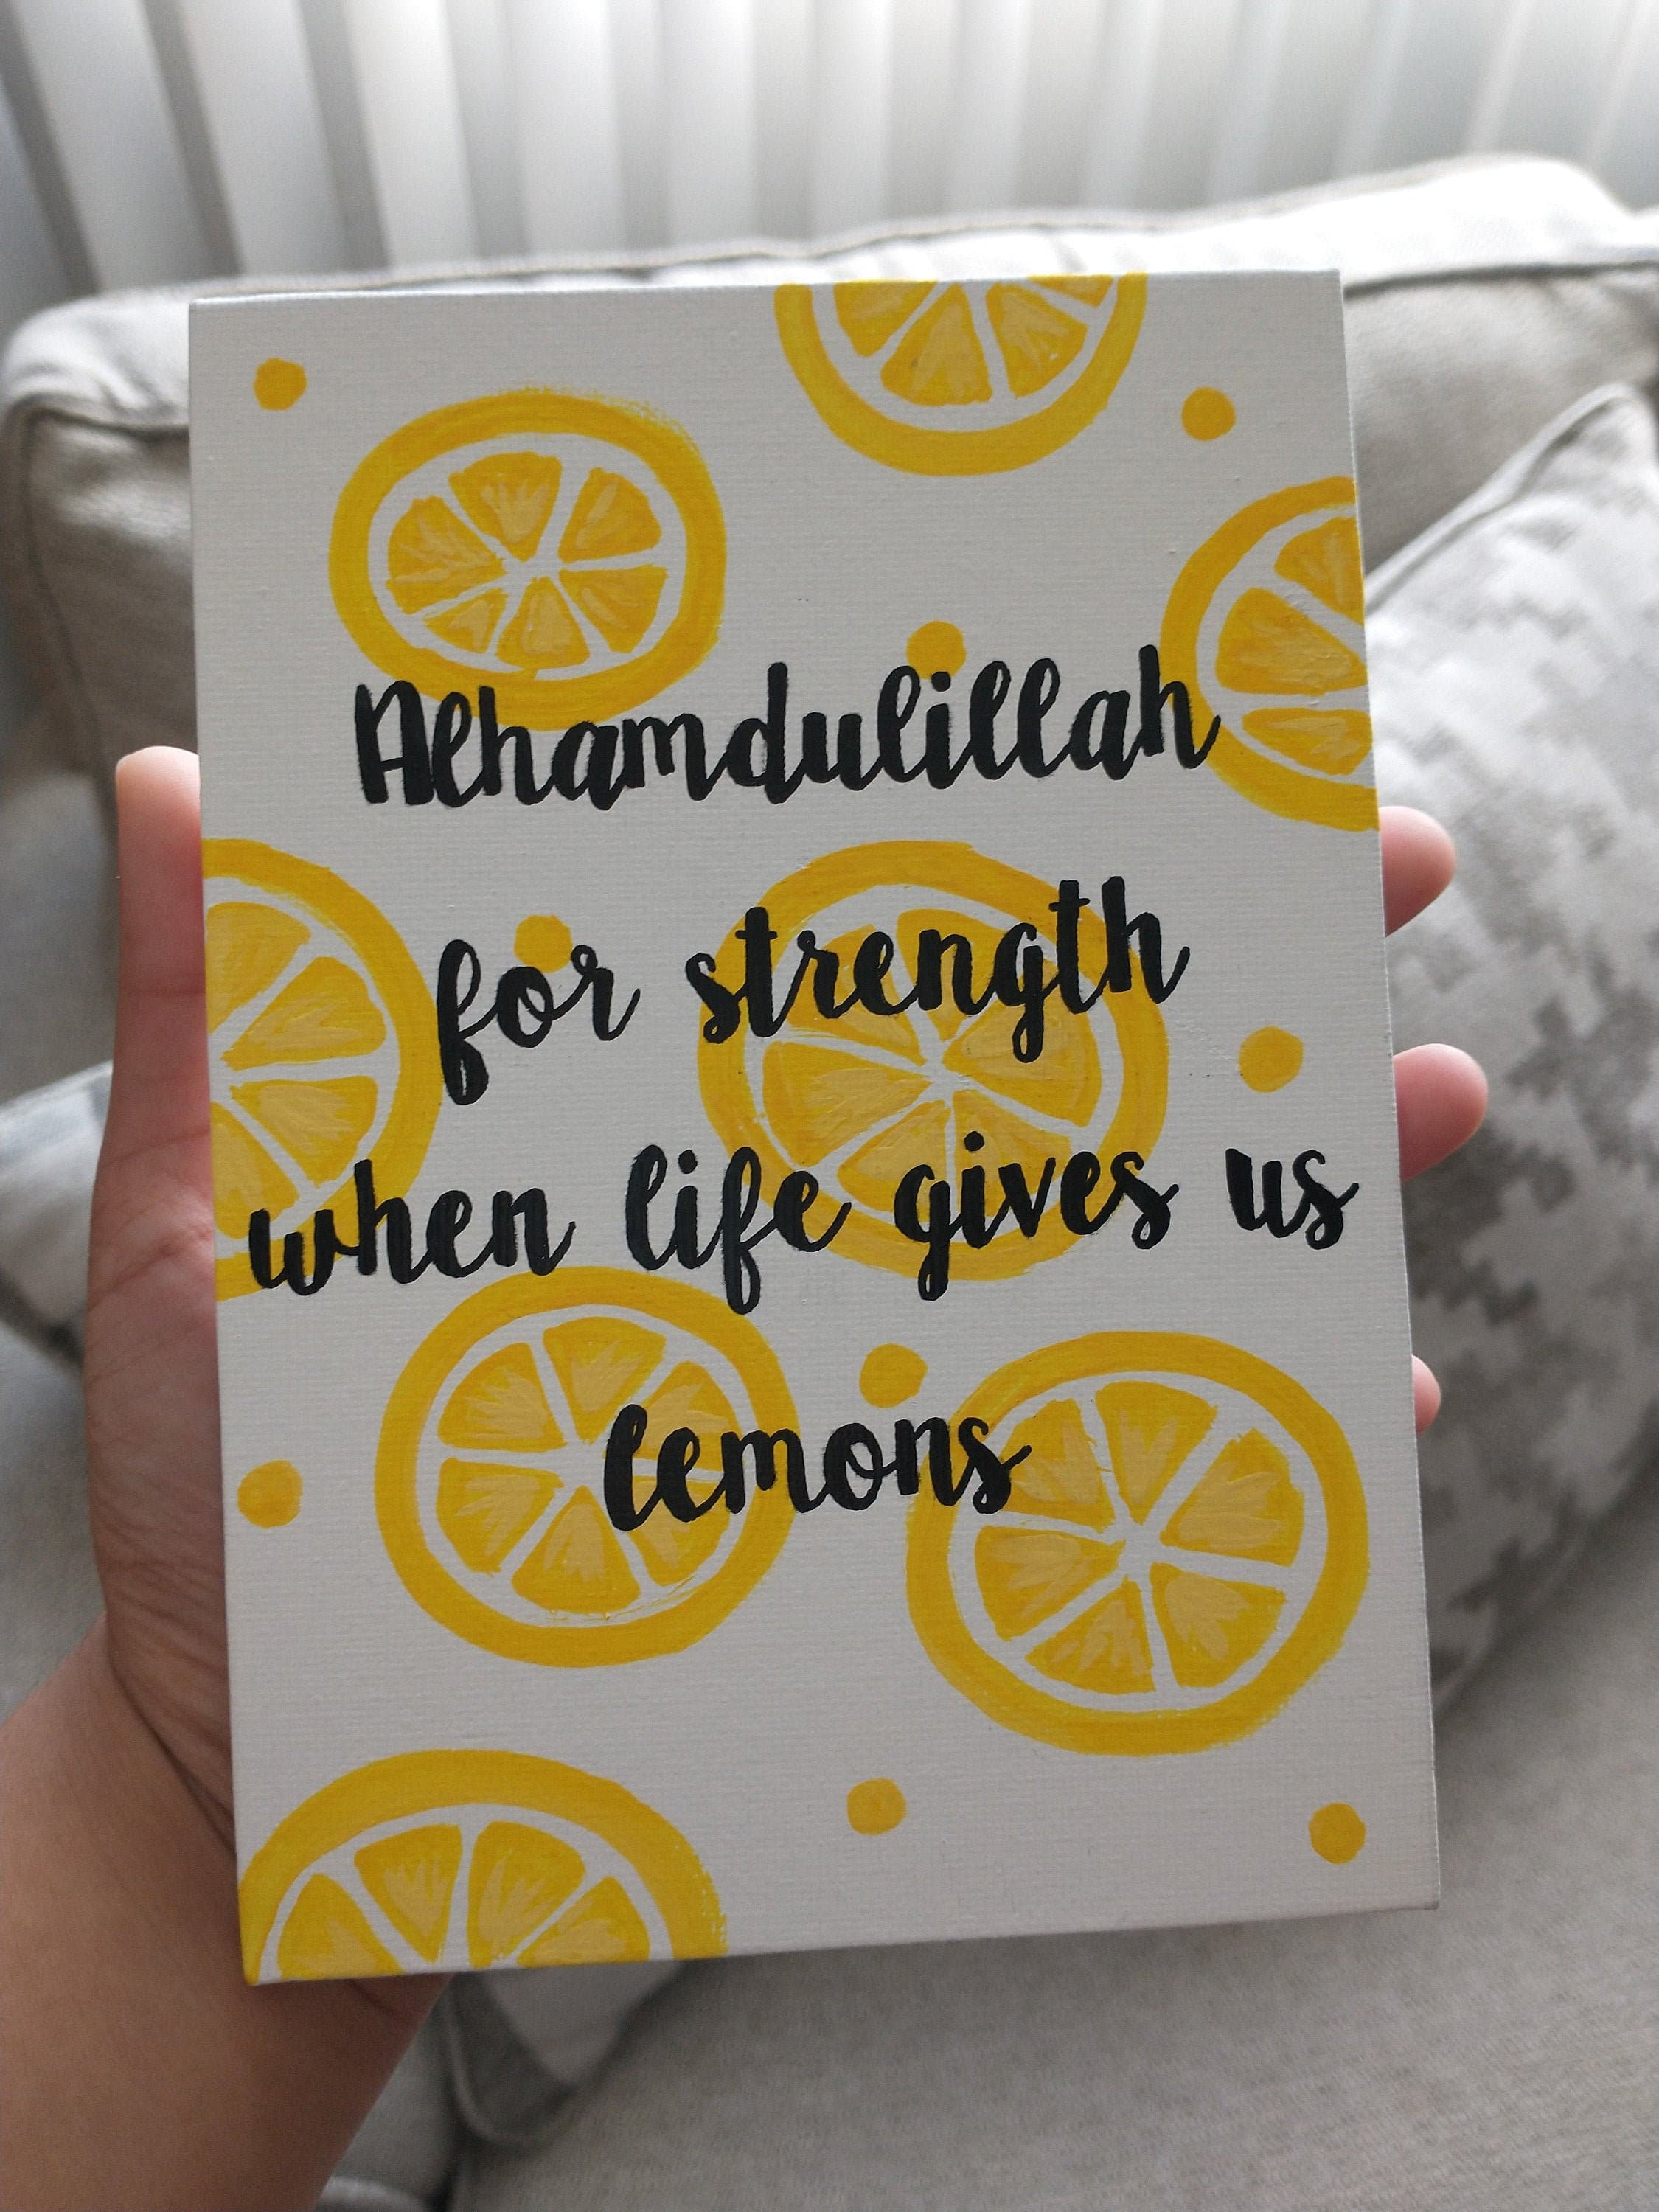 Alhamdulillah
for strength
when life gives us
lemons